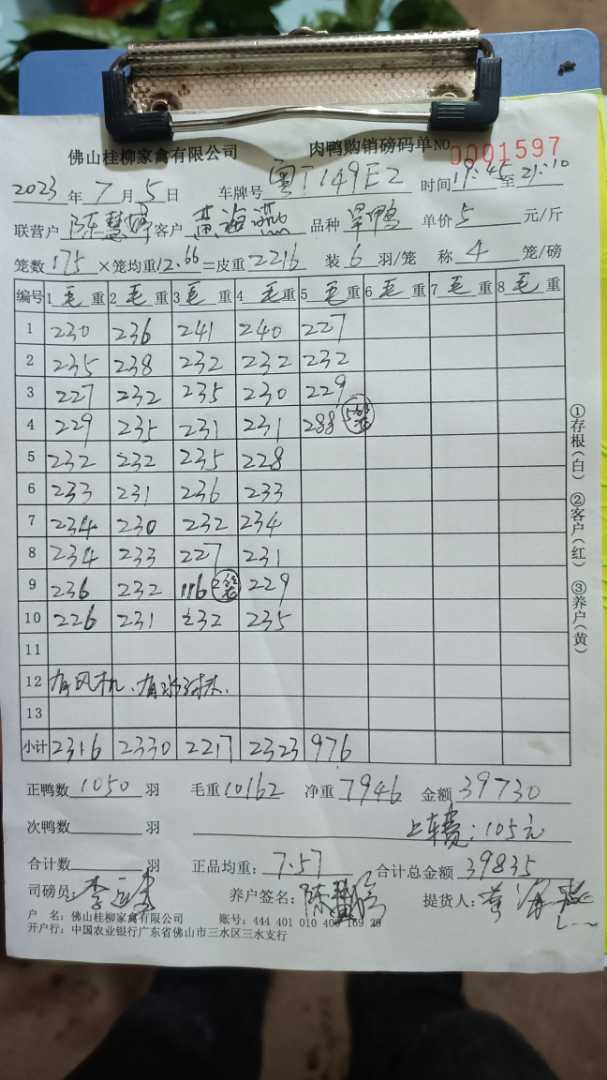 佛山桂柳家禽有限公司 肉鸭购销磅码单 NO 0001597
2023年7月5日 车牌号 粤T149E2 时间19:45至21:10
联营户 陈慧婷 客户 黄海燕 品种 旱鸭 单价 5 元/斤
笼数 175 ×笼均重12.66=皮重2216 装 6 羽/笼 称 4 笼/磅
编号 1 毛 重 2 毛 重 3 毛 重 4 毛 重 5 毛 重 6 毛 重 7 毛 重 8 毛 重
1 230 236 241 240 227
2 235 238 232 232 232
3 227 232 235 230 229
4 229 235 231 231 288
5 232 232 235 228
6 233 231 236 233
7 234 230 232 234
8 234 233 227 231
9 236 232 116 229
10 226 231 232 235
11
12 有风机、有
13
小计 2316 2330 2217 2323 976
正鸭数 1050 羽 毛重 10162 净重 7946 金额 39730
次鸭数 羽 上车费:105元
合计数 羽 正品均重: 7.57 合计总金额 39835
司磅员: 李 养户签名: 陈慧 提货人: 黄海燕
户 名: 佛山桂柳家禽有限公司 账号: 444 401 010 400 169 29
开户行: 中国农业银行广东省佛山市三水区三水支行
①存根(白) ②客户(红) ③养户(黄)